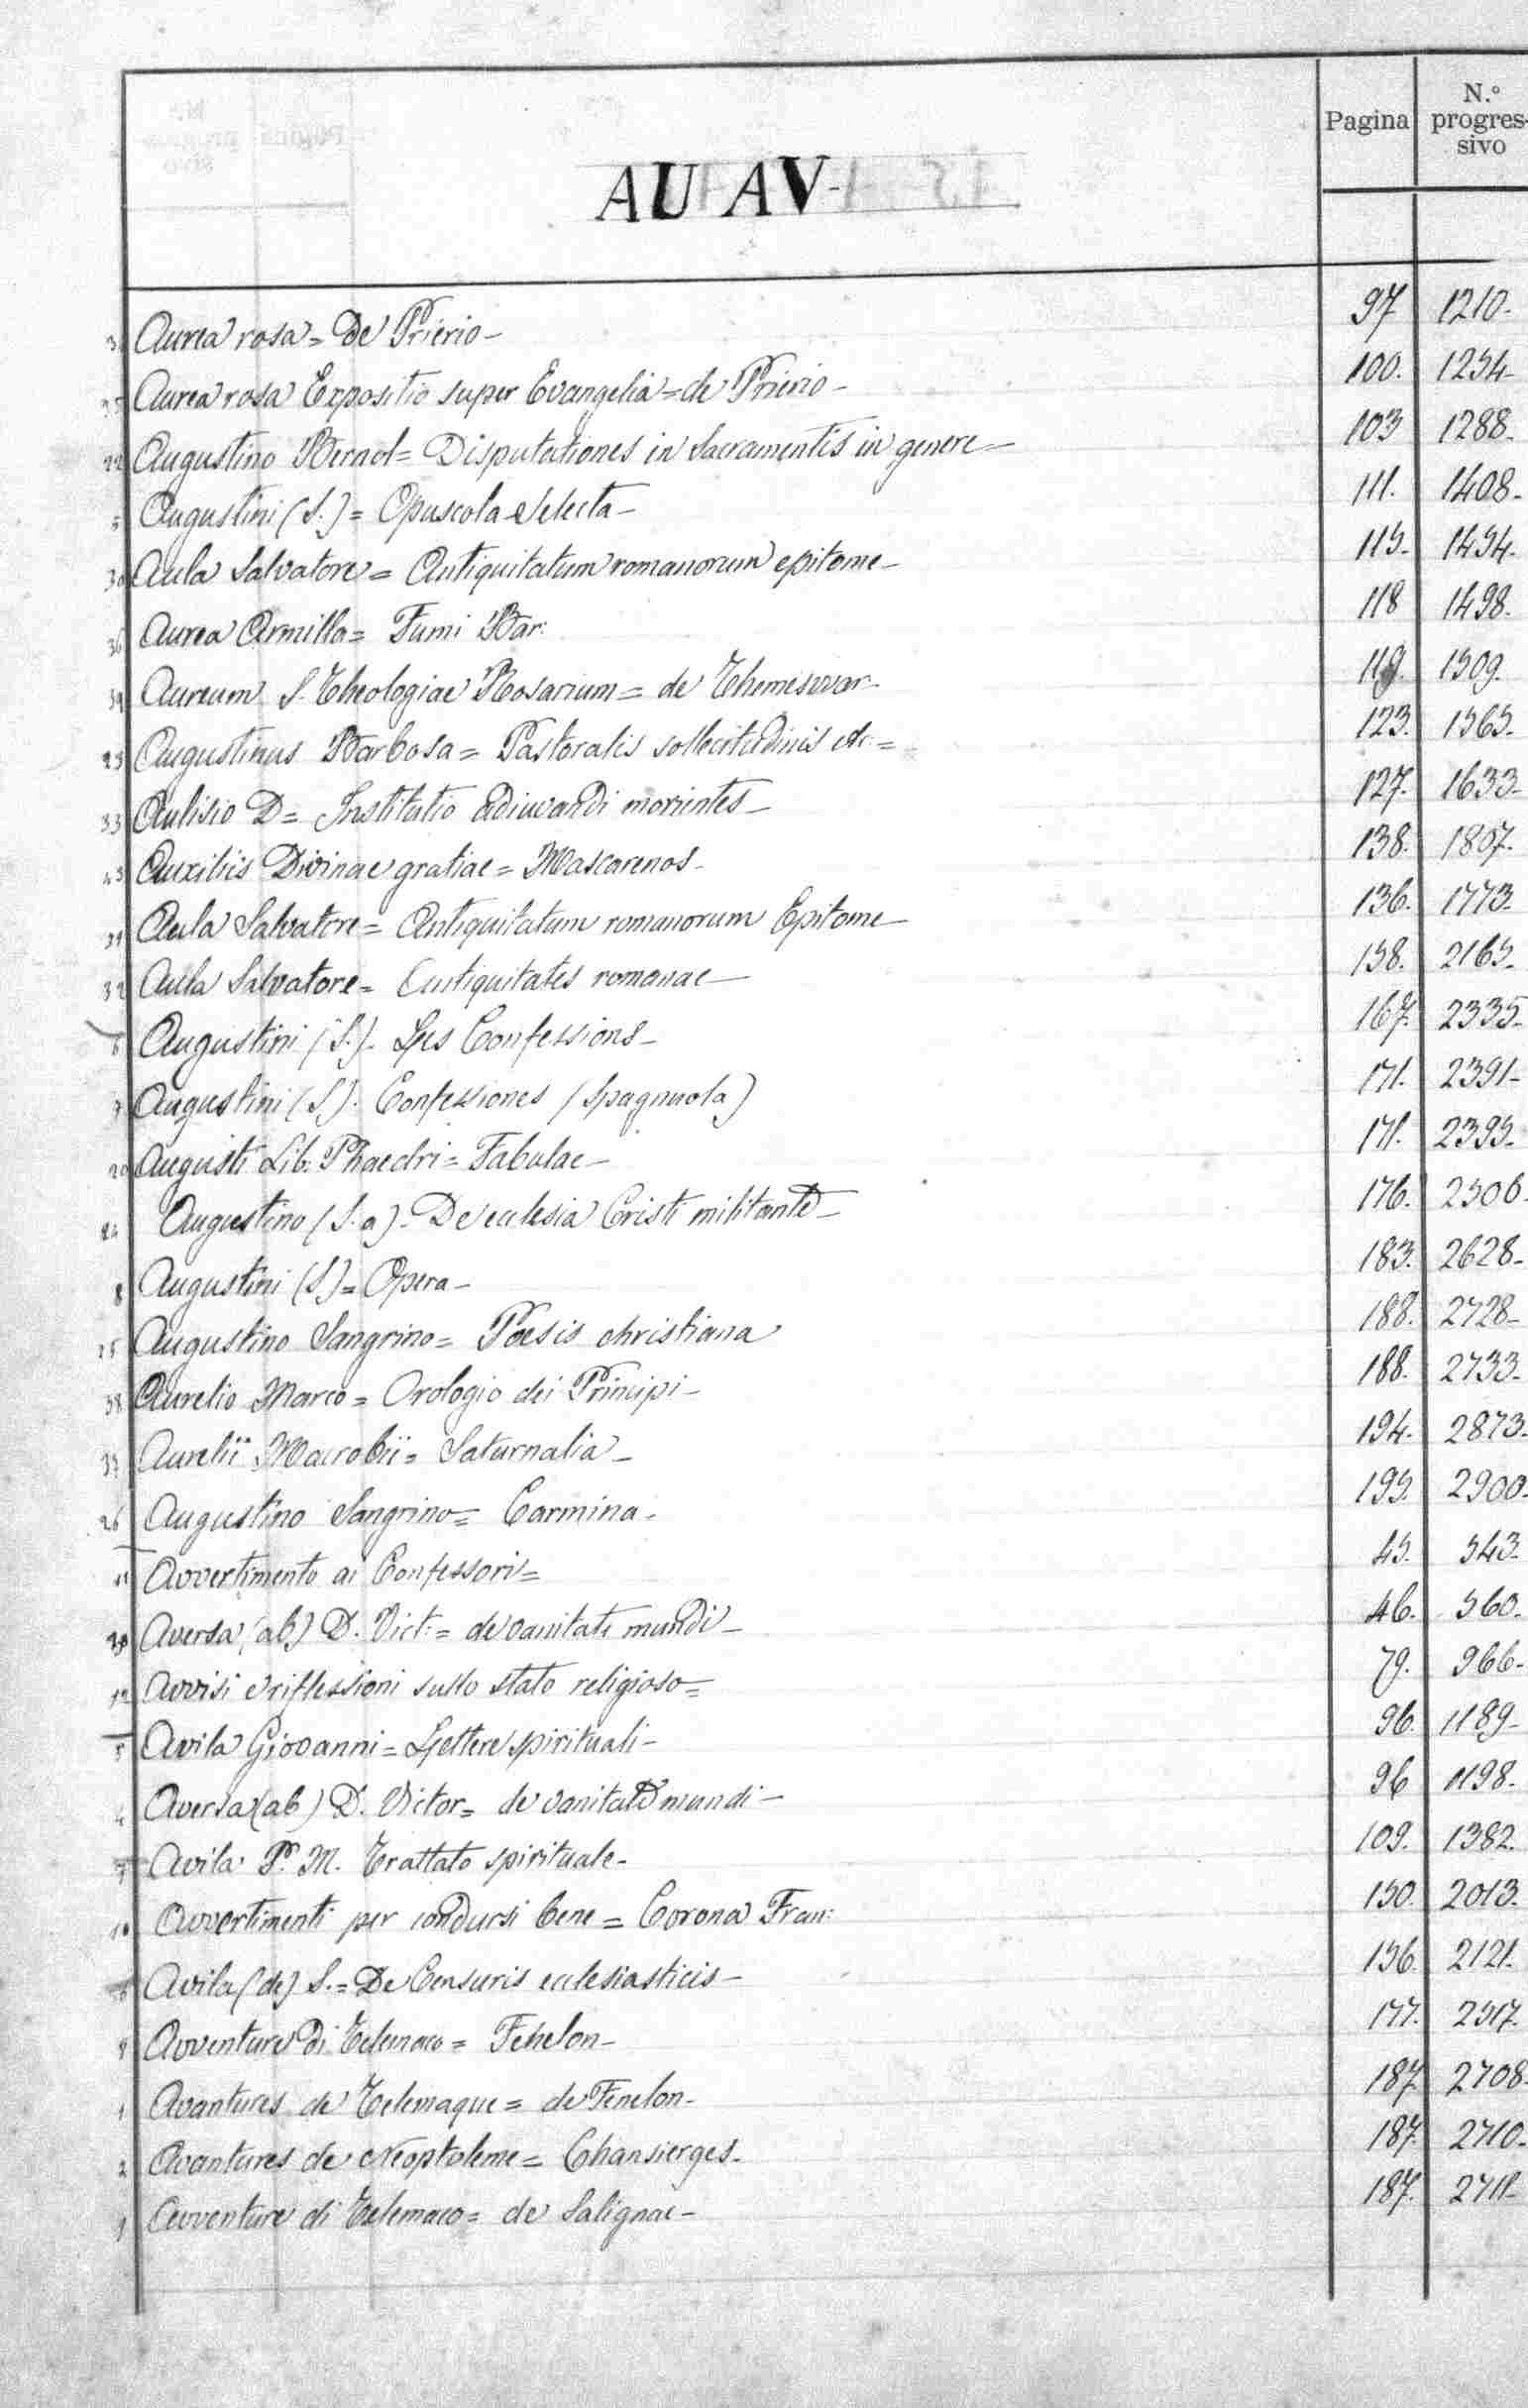 Pagina N.° progres-
sivo
AU AV-
Aurea rosa = De Prierio - 97 1210-
Aurea rosa Expositio super Evangelia = de Prierio - 100. 1254-
22 Augustino Bernal = Disputationes in Sacramentis in genere - 103 1288-
5 Augustini (S.) = Opuscola selecta - 111. 1408-
30 Aula Salvatore = Antiquitatum romanorum epitome - 115- 1454-
36 Aurea Armilla = Fumi Bar: 118 1498-
39 Aureum S. Theologiae Rosarium = de Themeswar - 119. 1509.
23 Augustinus Barbosa = Pastoralis sollecitudinis etc = 123. 1565-
33 Aulisio D = Institutio adiuvandi morientes - 127. 1633-
43 Auxiliis Divinae gratiae = Mascarenos - 138. 1807-
31 Aula Salvatore = Antiquitatum romanorum Epitome - 136. 1773-
32 Aula Salvatore = Antiquitates romanae - 158. 2165-
6 Augustini (S.) - Les Confessions - 167. 2335-
7 Augustini (S). Confessiones (Spagnuola) 171. 2391-
20 Augusti Lib: Phaedri = Fabulae - 171. 2395-
24 Augustino (S. a) - De eclesia Cristi militante - 176. 2506-
8 Augustini (S) = Opera - 183. 2628-
25 Augustino Sangrino = Poesis christiana 188. 2728-
38 Aurelio Marco = Orologio dei Principi - 188. 2733-
37 Aurelii Macrobii = Saturnalia - 194. 2873-
26 Augustino Sangrino = Carmina - 195. 2900-
11 Avvertimento ai Confessori = 45. 543-
Aversa (ab) D. Vict: = de vanitate mundi - 46. 560-
12 Avvisi e riflessioni sullo stato religioso = 79. 966-
5 Avila Giovanni = Lettere spirituali - 96. 1189-
4 Aversa (ab) D. Victor = de vanitate mundi - 96 1198-
7 Avila P. M. Trattato spirituale - 109. 1382-
10 Avvertimenti per condursi bene = Corona Fran: 150. 2013-
6 Avila (de) S. = De Censuris ecclesiasticis - 156. 2121-
8 Avventure di Telemaco = Fenelon - 177. 2517-
1 Avantures de Telemaque = de Fenelon - 187. 2708-
2 Avantures de Neoptoleme = Chansierges - 187. 2710-
9 Avventure di Telemaco = de Salignac - 187. 2711-